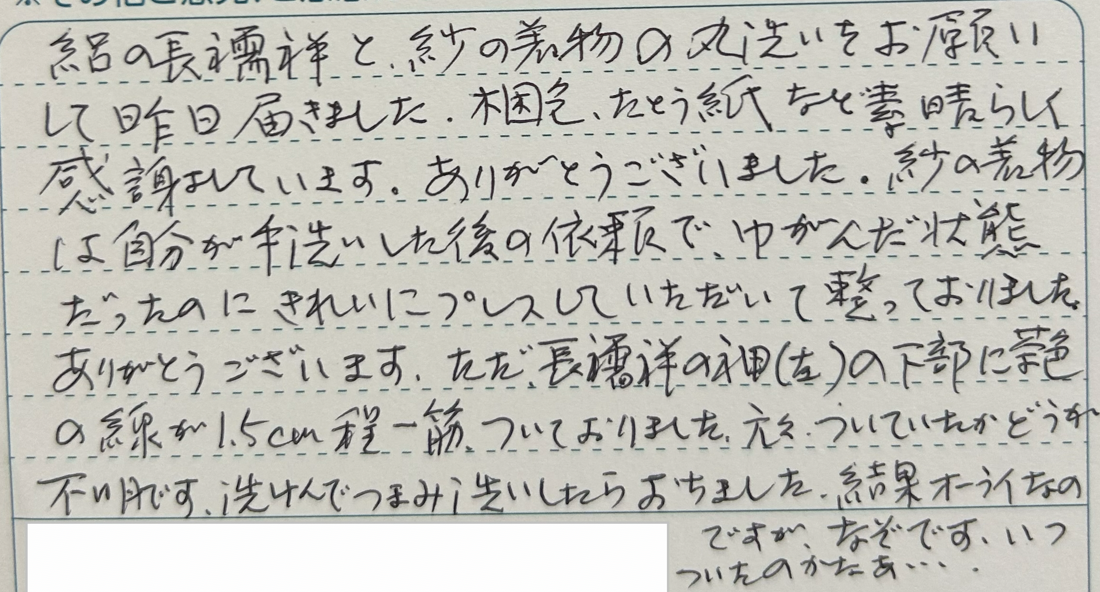 絽の長襦袢と、紗の着物の丸洗いをお願い
して昨日届きました。梱包、たとう紙など素晴らしく
感謝しています。ありがとうございました。紗の着物
は自分が手洗いした後の依頼で、ゆがんだ状態
だったのにきれいにプレスしていただいて整っておりました。
ありがとうございます。ただ、長襦袢の袖(左)の下部に茶色
の線が1.5cm程一筋、ついておりました。元々、ついていたかどうか
不明です。洗けんでつまみ洗いしたらおちました。結果オーライなの
ですが、なぞです。いつ
ついたのかなあ・・・。